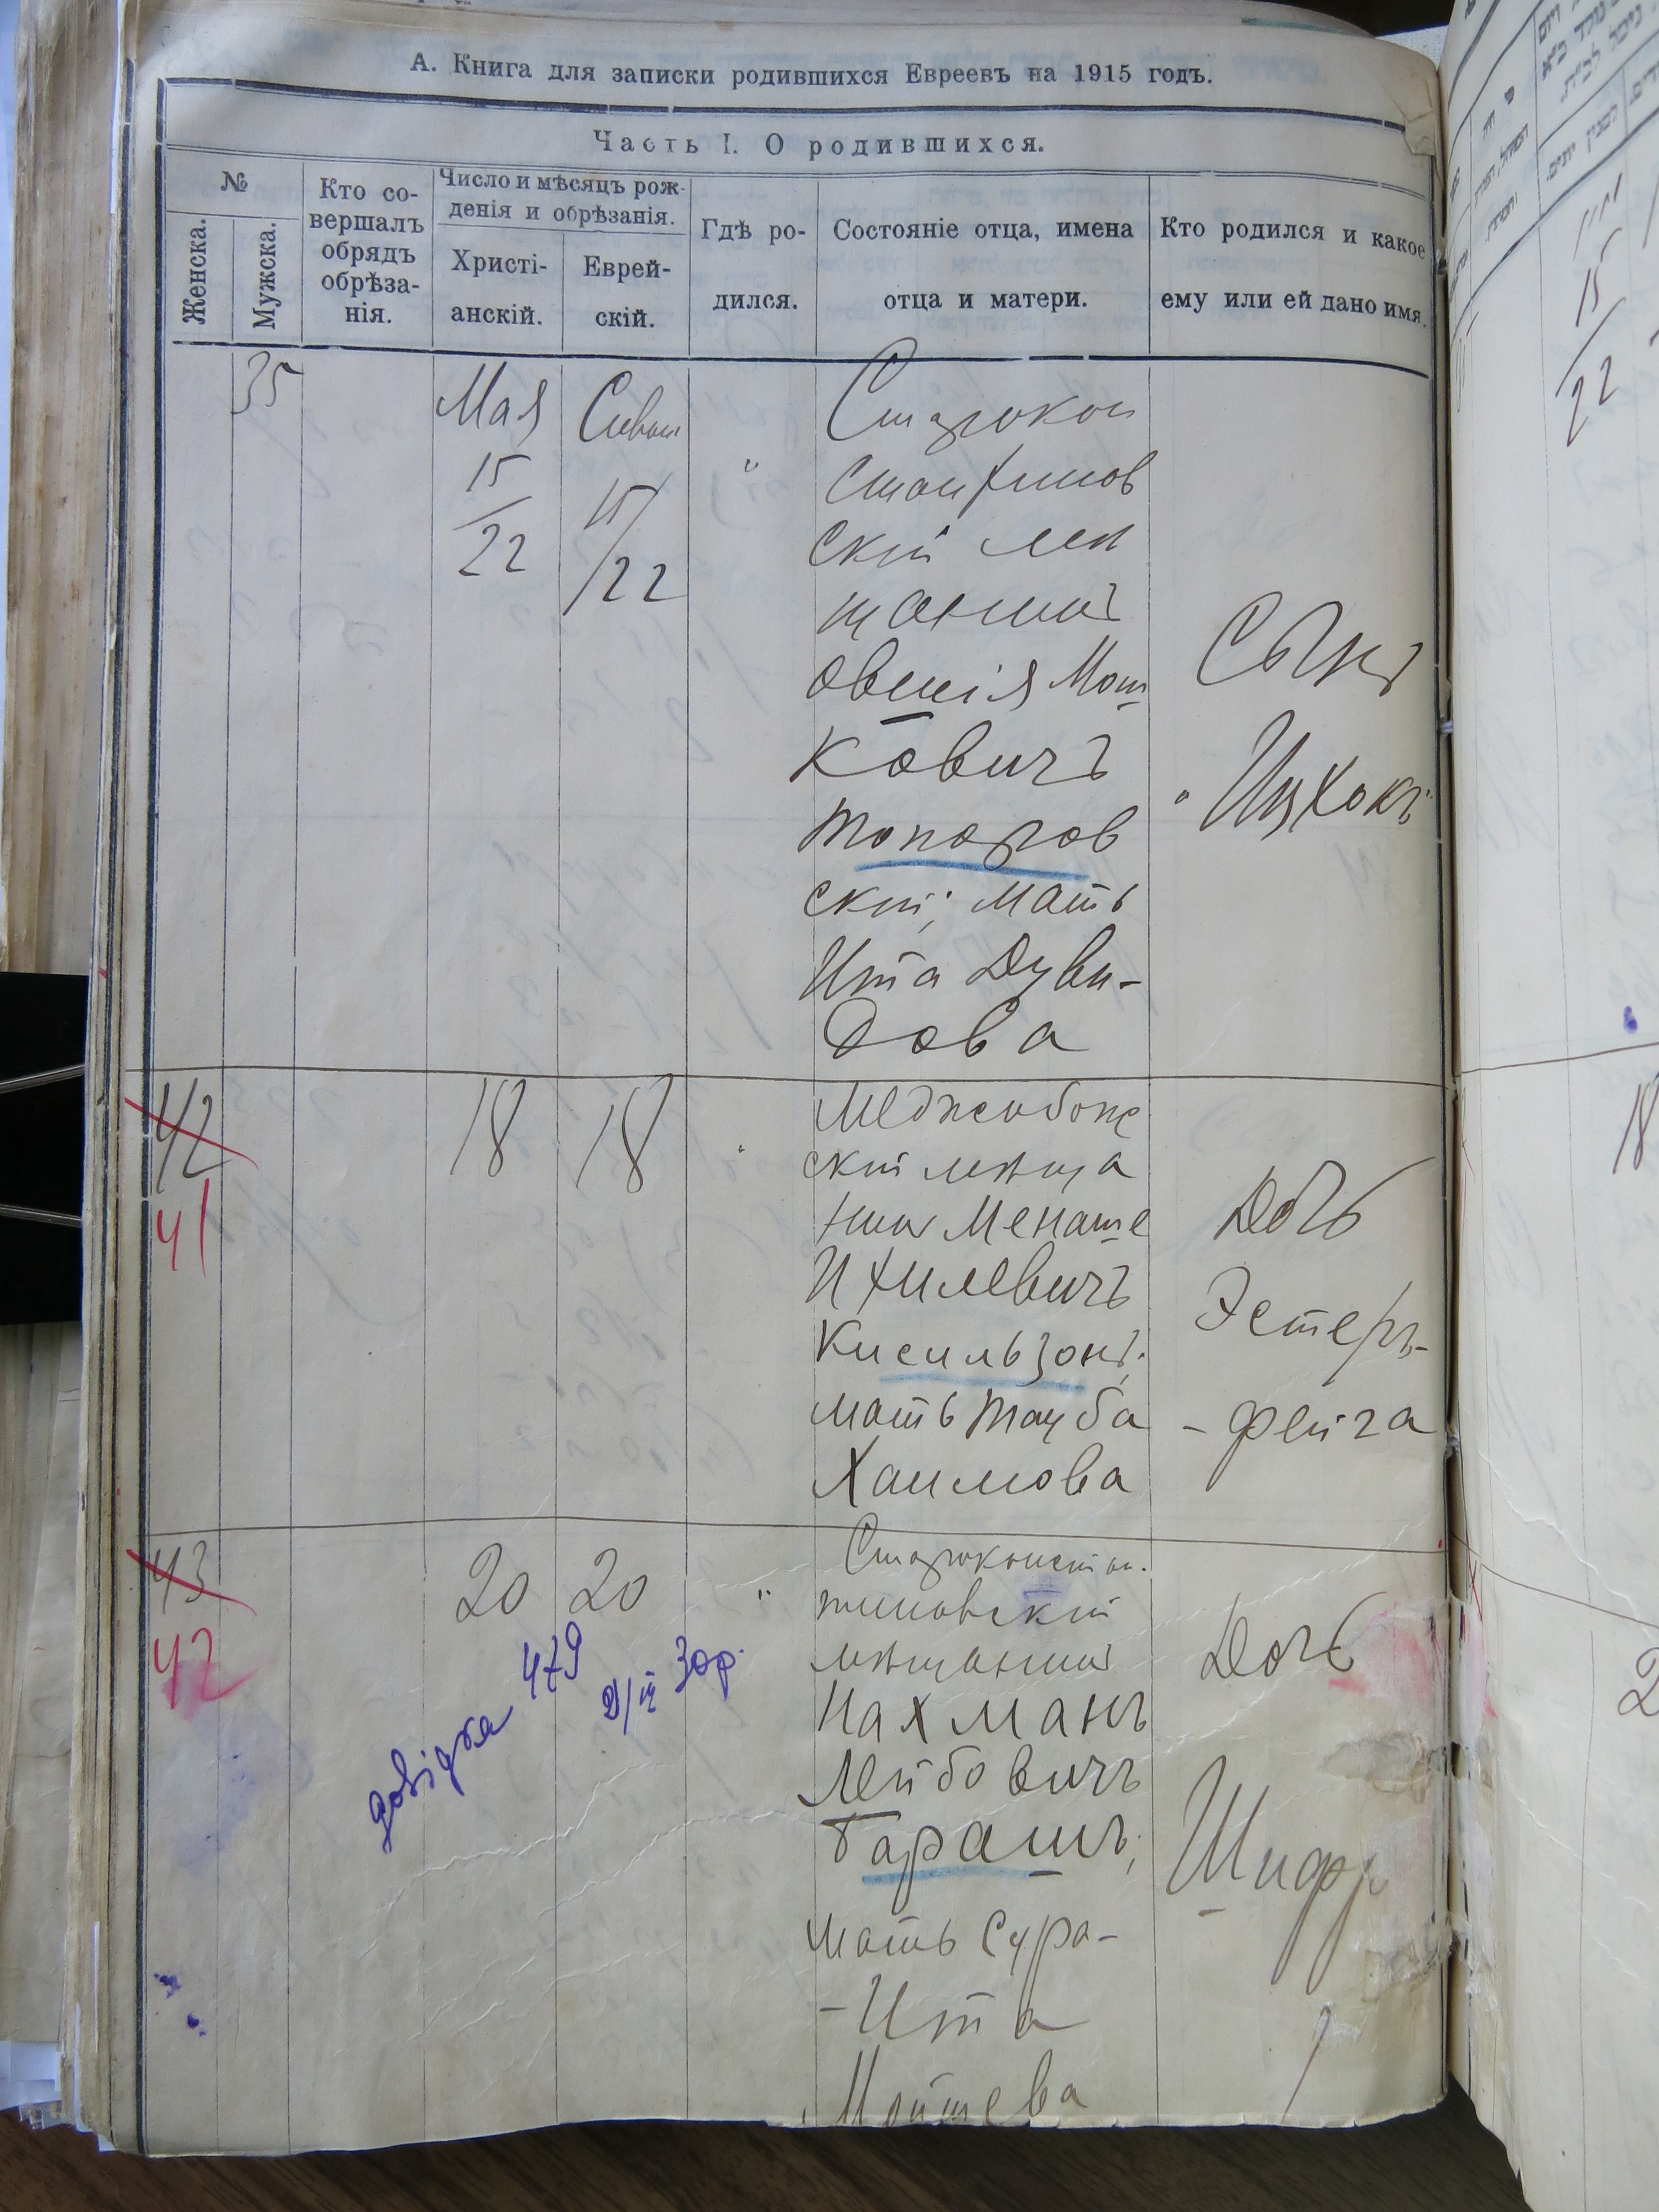 А. Книга для записки родившихся Евреевъ на 1915 годъ.
Часть I. О родившихся.
№
Женска.
Мужска.
Кто со-
вершалъ
обрядъ
обрѣза-
нія.
Число и мѣсяцъ рож-
денія и обрѣзанія.
Христі-
анскій.
Еврей-
скій.
Гдѣ ро-
дился.
Состояніе отца, имена
отца и матери.
Кто родился и какое
ему или ей дано имя.
35
Мая
15
22
Сиван
15
22
"
Старокон
стантинов
скій мѣ
щанинъ
Овшія Мош
ковичъ
Топоров
скій; мать
Ита Дуви-
дова
Сынъ
"Ицхокъ"
42
41
18
18
"
Меджибож
скій мѣща
нинъ Менаше
Ихилевичъ
Кисильзонъ;
мать Тауба
Хаимова
Дочь
Эстеръ-
- Фейга
43
42
20
20
"
довідка 479
Зар.
Староконстан.
тиновскій
мѣщанинъ
Нахманъ
Лейбовичъ
Барашъ;
мать Сура-
- Ита
Мойшева
Дочь
Шифр
18
15
22